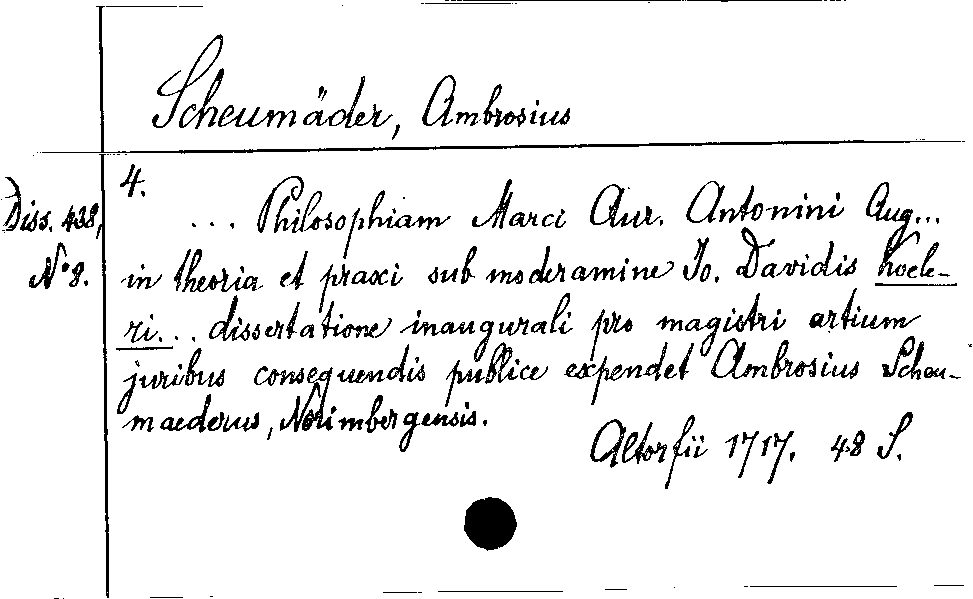 Scheumäder, Ambrosius
4.
Diss. 438,
N° 8.
... Philosophiam Marci Aur. Antonini Aug...
in theoria et praxi sub moderamine Jo. Davidis Koele-
ri... dissertatione inaugurali pro magistri artium
juribus consequendis publice expendet Ambrosius Scheu-
maederus, Norimbergensis.
Altorfii 1717. 48 S.